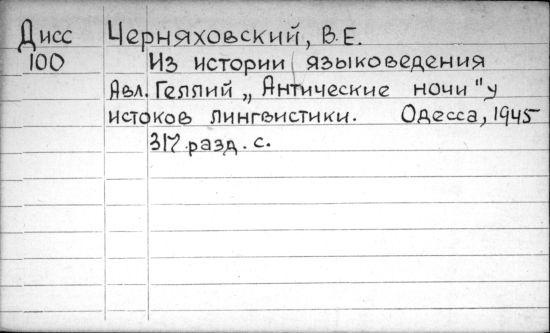 Дисс Черняховский, В.Е.
100 Из истории языковедения
Авл. Геллий „Антические ночи" у
истоков лингвистики. Одесса, 1945
317 разд. с.